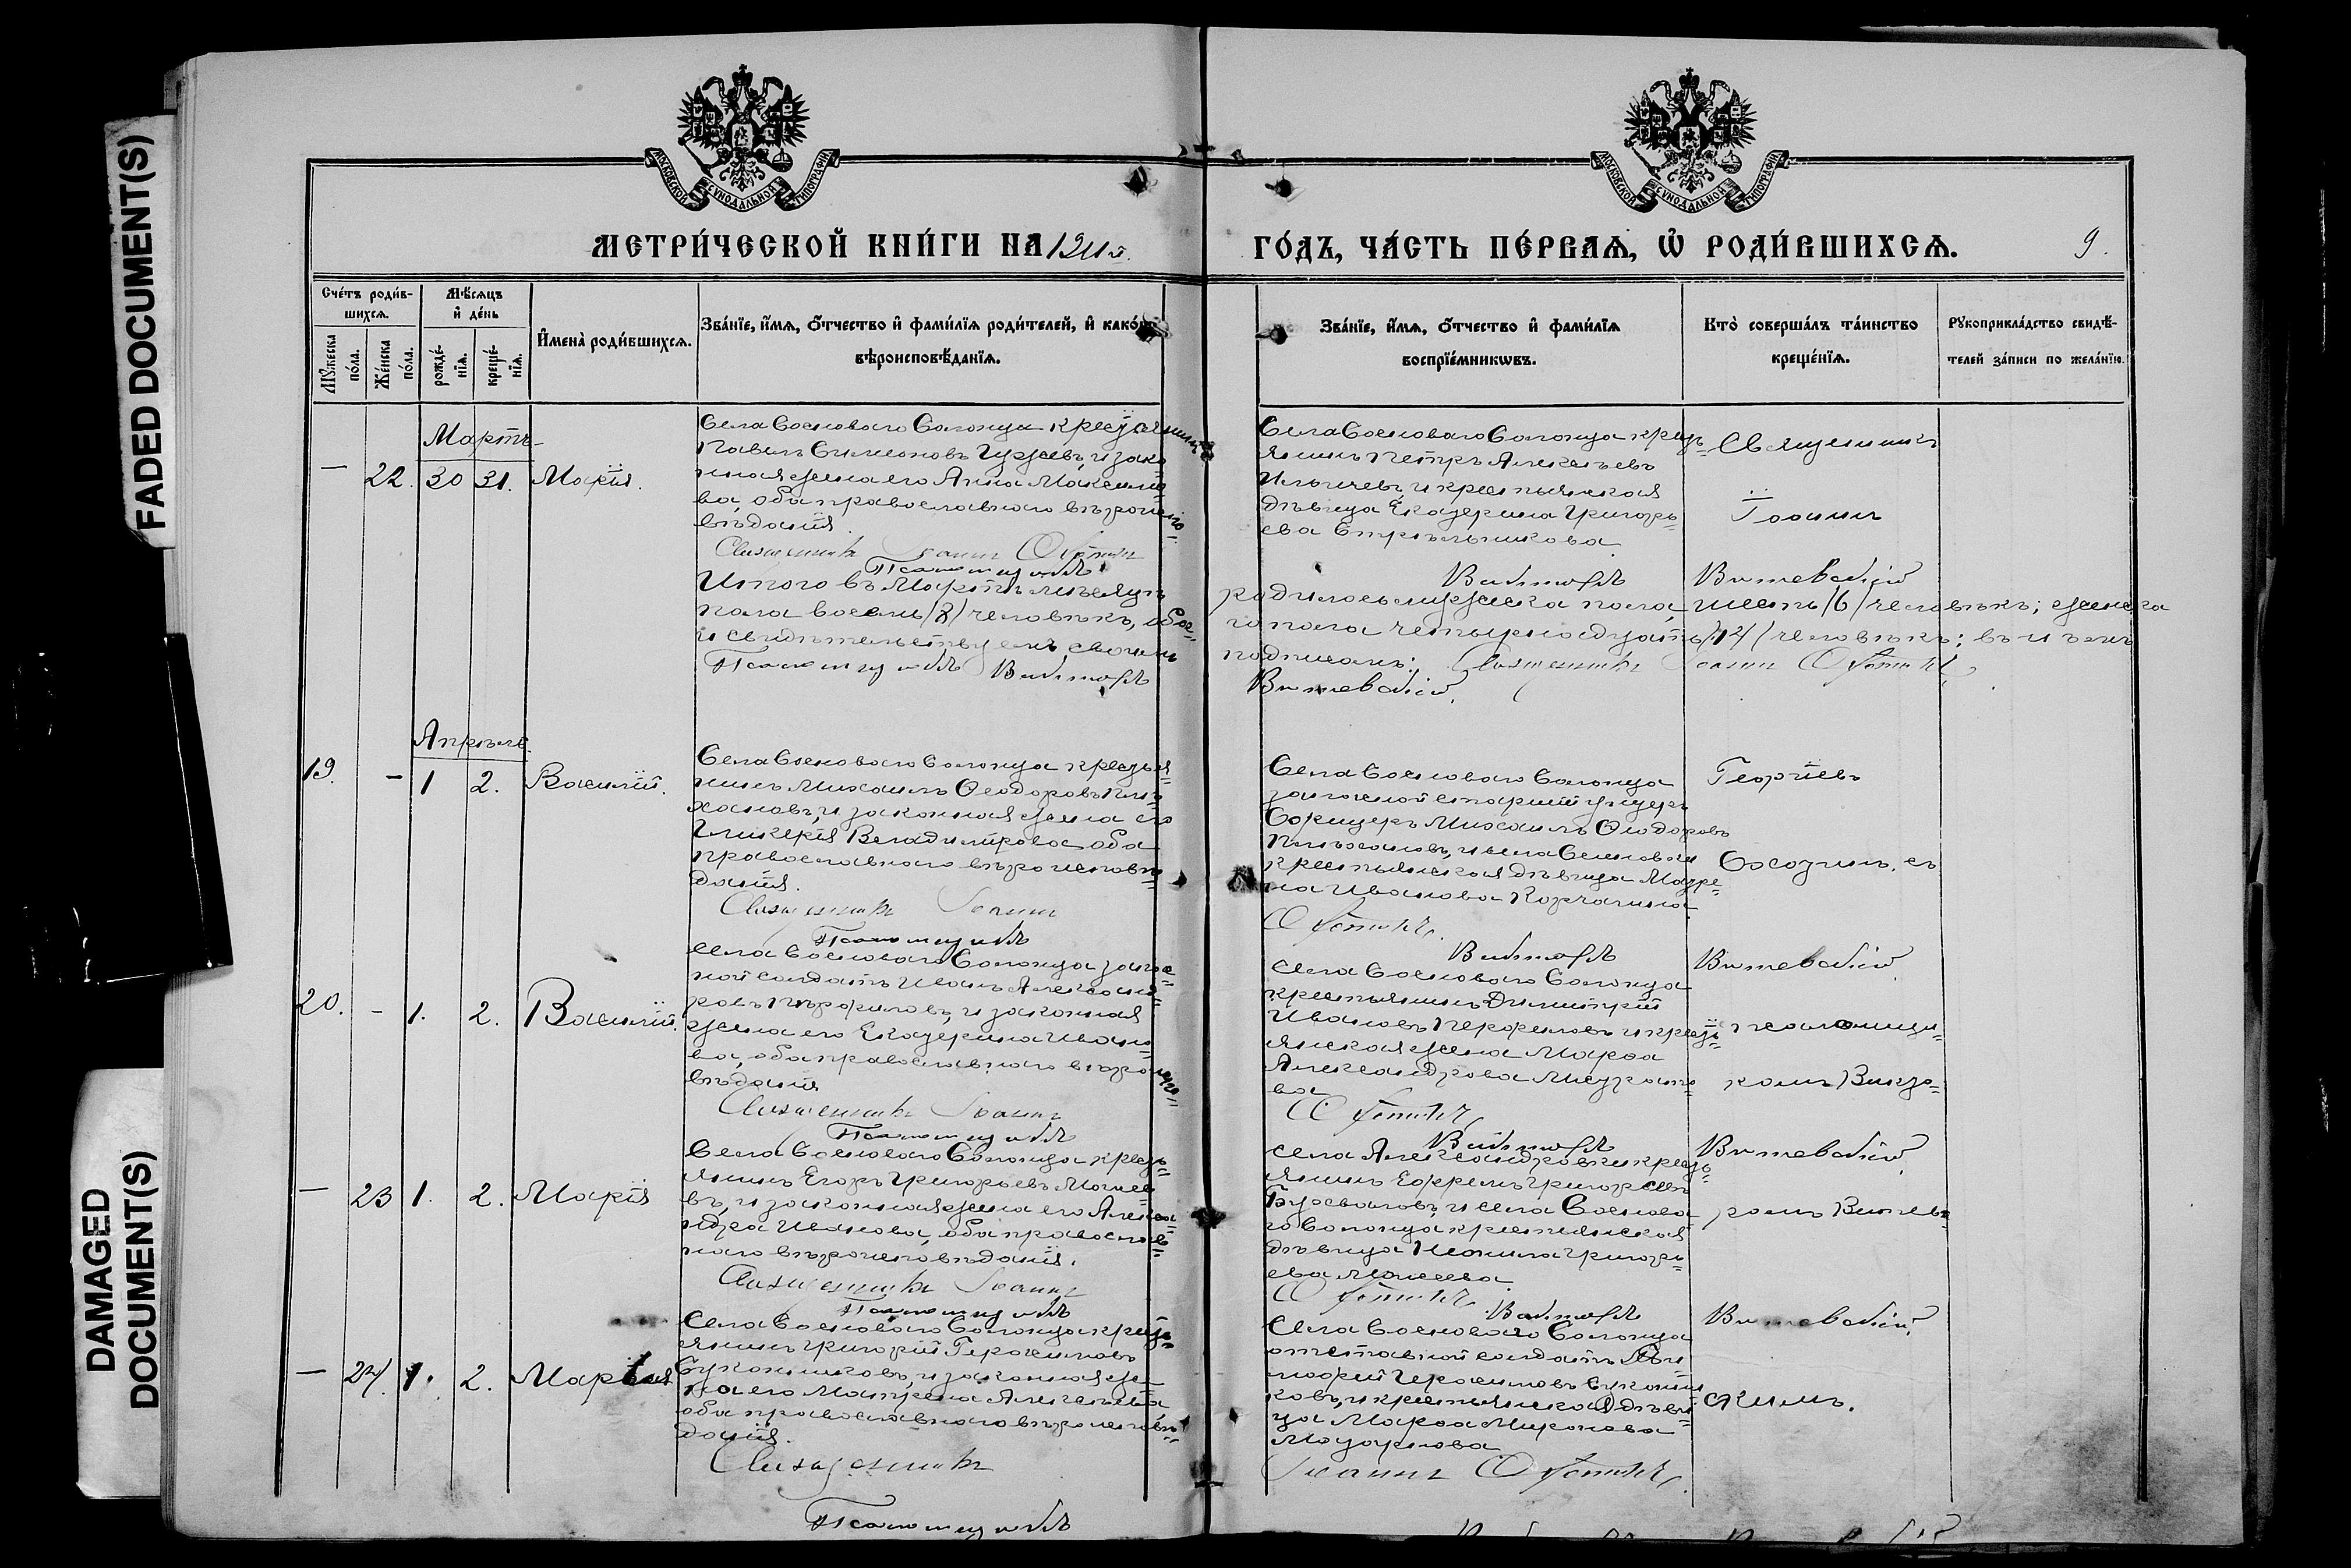 DAMAGED DOCUMENT(S)
FADED DOCUMENT(S)
МОСКОВСКОЙ СѴНОДАЛЬНОЙ ТИПОГРАФІИ
МОСКОВСКОЙ СѴНОДАЛЬНОЙ ТИПОГРАФІИ
МЕТРИ́ЧЕСКОЙ КНИ́ГИ НА 1911й.
ГО́ДЪ, ЧА́СТЬ ПЕ́РВАѦ, Ѽ РОДИ́ВШИХСѦ.
9.
Сче́тъ роди́в-
шихсѧ.
Мꙋ́жеска
по́ла.
Же́нска
по́ла.
Мѣ́сѧцъ
и҆ де́нь
рожде́-
нїѧ.
креще́-
нїѧ.
И҆мена̀ роди́вшихсѧ.
Зва́нїе, и҆́мѧ, ѻ҆́тчество и҆ фами́лїѧ роди́телей, и҆ како́гѡ
вѣроисповѣ́данїѧ.
Зва́нїе, и҆́мѧ, ѻ҆́тчество и҆ фами́лїѧ
воспрїе́мникѡвъ.
Кто̀ соверша́лъ та́инство
креще́нїѧ.
Рꙋкоприкла́дство свидѣ́-
телей за́писи по жела́нїю.
Мартъ
— 22. 30 31. Марія.
Села Сосноваго Солонца крестьянинъ
Павелъ Симеоновъ Гужевъ, и зако=
нная жена его Анна Максимо=
ва, оба православнаго вѣроиспо=
вѣданія.
Священникъ Іоаннъ
Псаломщикъ
Села Сосноваго Солонца кресть=
янинъ Петръ Алексѣевъ
Ильичевъ, и крестьянская
дѣвица Екатерина Григорь=
ева Стрѣльникова.
Викторъ
Священникъ
Іоаннъ
Витевскій
Итого въ Мартѣ мѣсяцѣ
родилось мужеска пола, шесть /6/ человѣкъ; женска
пола восемь /8/ человѣкъ, обое=
го пола четырнадцать /14/ человѣкъ; въ чемъ
и свидѣтельствуемъ своимъ
подписомъ: Священникъ Іоаннъ
Псаломщикъ Викторъ
Витевскій.
Апрѣль.
19. — 1 2. Василій.
Села Сосноваго Солонца крестья=
нинъ Михаилъ Ѳеодоровъ Пль=
хановъ, и законная жена его
Гликерія Владимірова оба
православнаго вѣроисповѣ=
данія.
Священникъ Іоаннъ
Псаломщикъ
Села Сосноваго Солонца
запасной старшій унтеръ
Офицеръ Михаилъ Ѳеодоровъ
крестьянская дѣвица Матре=
на Иванова Корчагина.
Викторъ
Георгіевъ
Витевскій
20. — 1. 2. Василій.
Села Сосноваго Солонца запас=
ной солдатъ Иванъ Александ=
ровъ Перфиловъ, и законная
жена его Екатерина Ивано=
ва, оба православнаго вѣроиспо=
вѣданія
Священникъ Іоаннъ
Псаломщикъ
Села Сосноваго Солонца
крестьянинъ Димитрій
Ивановъ Перфиловъ и кресть=
янская жена Марѳа
Александрова
Викторъ
съ
псаломщи=
комъ Викто=
Витевскій
— 23 1. 2. Марія
Села Сосноваго Солонца кресть=
янинъ Егоръ Григорьевъ Моисее=
въ, и законная жена его Алекса=
ндра Иванова, оба православ=
наго вѣроисповѣданія.
Священникъ Іоаннъ
Псаломщикъ
Села Александровки кресть=
янинъ Ефремъ Григорьевъ
и села Соснова=
го Солонца крестьянская
дѣвица Неонила Григорь=
ева Моисеева
Викторъ
ромъ Витев=
Витевскій
— 24. 1. 2. Марѳа
Села Сосноваго Солонца кресть=
янинъ Григорій Герасимовъ
Суконниковъ, и законная же=
на его Матрена Алексѣева
оба православнаго вѣроисповѣ=
данія.
Священникъ
Псаломщикъ
Села Сосноваго Солонца
отставной солдатъ
Герасимовъ Суконни=
ковъ, и крестьянская дѣви=
ца Марѳа Миронова
Іоаннъ
скимъ.